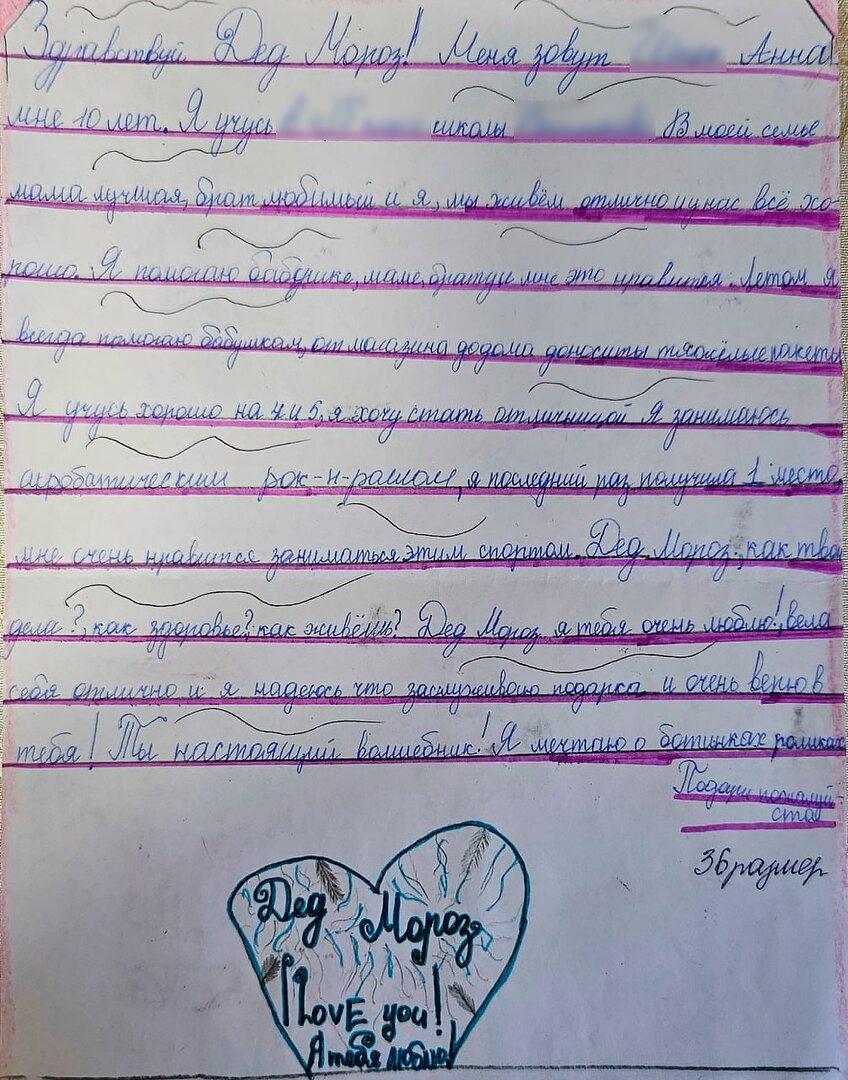 Здравствуй Дед Мороз! Меня зовут Анна
мне 10 лет. Я учусь школы В моей семье
мама лучшая, брат любимый и я, мы живём отлично и у нас всё хо-
рошо. Я помогаю бабушке, маме, брату и мне это нравится. Летом я
всегда помогаю бабушкам, от магазина до дома доносить тяжёлые пакеты
Я учусь хорошо на 4 и 5, я хочу стать отличницой Я занимаюсь
акробатическим рок-н-роллом, я последний раз получила 1 место
мне очень нравится заниматься этим спортом. Дед Мороз, как твои
дела?, как здоровье? как живёшь? Дед Мороз я тебя очень люблю!, вела
себя отлично и я надеюсь что заслуживаю подарка и очень верю в
тебя! Ты настоящий волшебник! Я мечтаю о ботинках роликах
Подари пожалуй-
ста
36 размер
Дед Мороз
I LovE you!
Я тебя люблю!